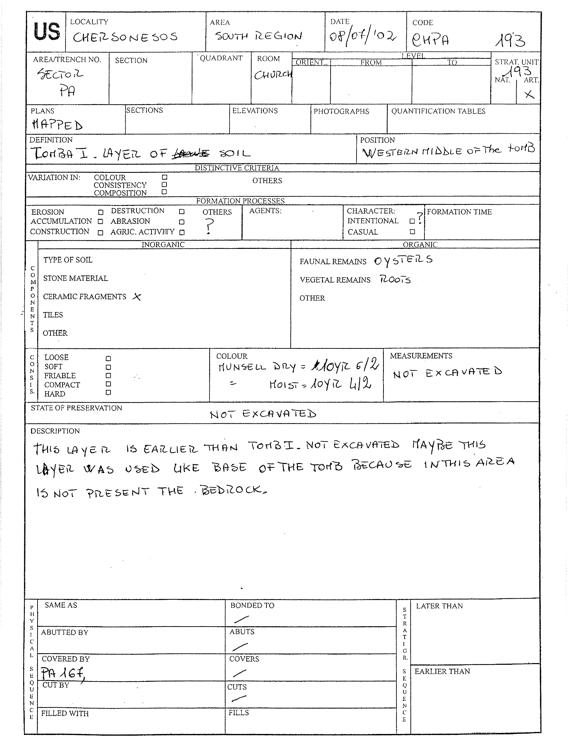 US
LOCALITY
CHERSONESOS
AREA
SOUTH REGION
DATE
08/07/'02
CODE
CHPA 193
AREA/TRENCH NO.
SECTOR
PA
SECTION
QUADRANT
ROOM
CHURCH
LEVEL
ORIENT. FROM TO
STRAT. UNIT
193
NAT. ART.
X
PLANS
MAPPED
SECTIONS
ELEVATIONS
PHOTOGRAPHS
QUANTIFICATION TABLES
DEFINITION
TOMBA I. LAYER OF SOIL
POSITION
WESTERN MIDDLE OF THE TOMB
DISTINCTIVE CRITERIA
VARIATION IN: COLOUR
CONSISTENCY
COMPOSITION
OTHERS
FORMATION PROCESSES
EROSION
ACCUMULATION
CONSTRUCTION
DESTRUCTION
ABRASION
AGRIC. ACTIVITY
OTHERS
?
AGENTS:
CHARACTER:
INTENTIONAL ?
CASUAL
FORMATION TIME
COMPONENTS
INORGANIC
TYPE OF SOIL
STONE MATERIAL
CERAMIC FRAGMENTS X
TILES
OTHER
ORGANIC
FAUNAL REMAINS OYSTERS
VEGETAL REMAINS ROOTS
OTHER
CONSIS.
LOOSE
SOFT
FRIABLE
COMPACT
HARD
COLOUR
MUNSELL DRY = 10YR 6/2
= MOIST = 10YR 4/2
MEASUREMENTS
NOT EXCAVATED
STATE OF PRESERVATION
NOT EXCAVATED
DESCRIPTION
THIS LAYER IS EARLIER THAN TOMB I. NOT EXCAVATED MAYBE THIS
LAYER WAS USED LIKE BASE OF THE TOMB BECAUSE IN THIS AREA
IS NOT PRESENT THE BEDROCK.
PHYSICAL SEQUENCE
SAME AS
ABUTTED BY
COVERED BY
PA 167,
CUT BY
FILLED WITH
BONDED TO
/
ABUTS
/
COVERS
/
CUTS
/
FILLS
STRATIGR. SEQUENCE
LATER THAN
EARLIER THAN